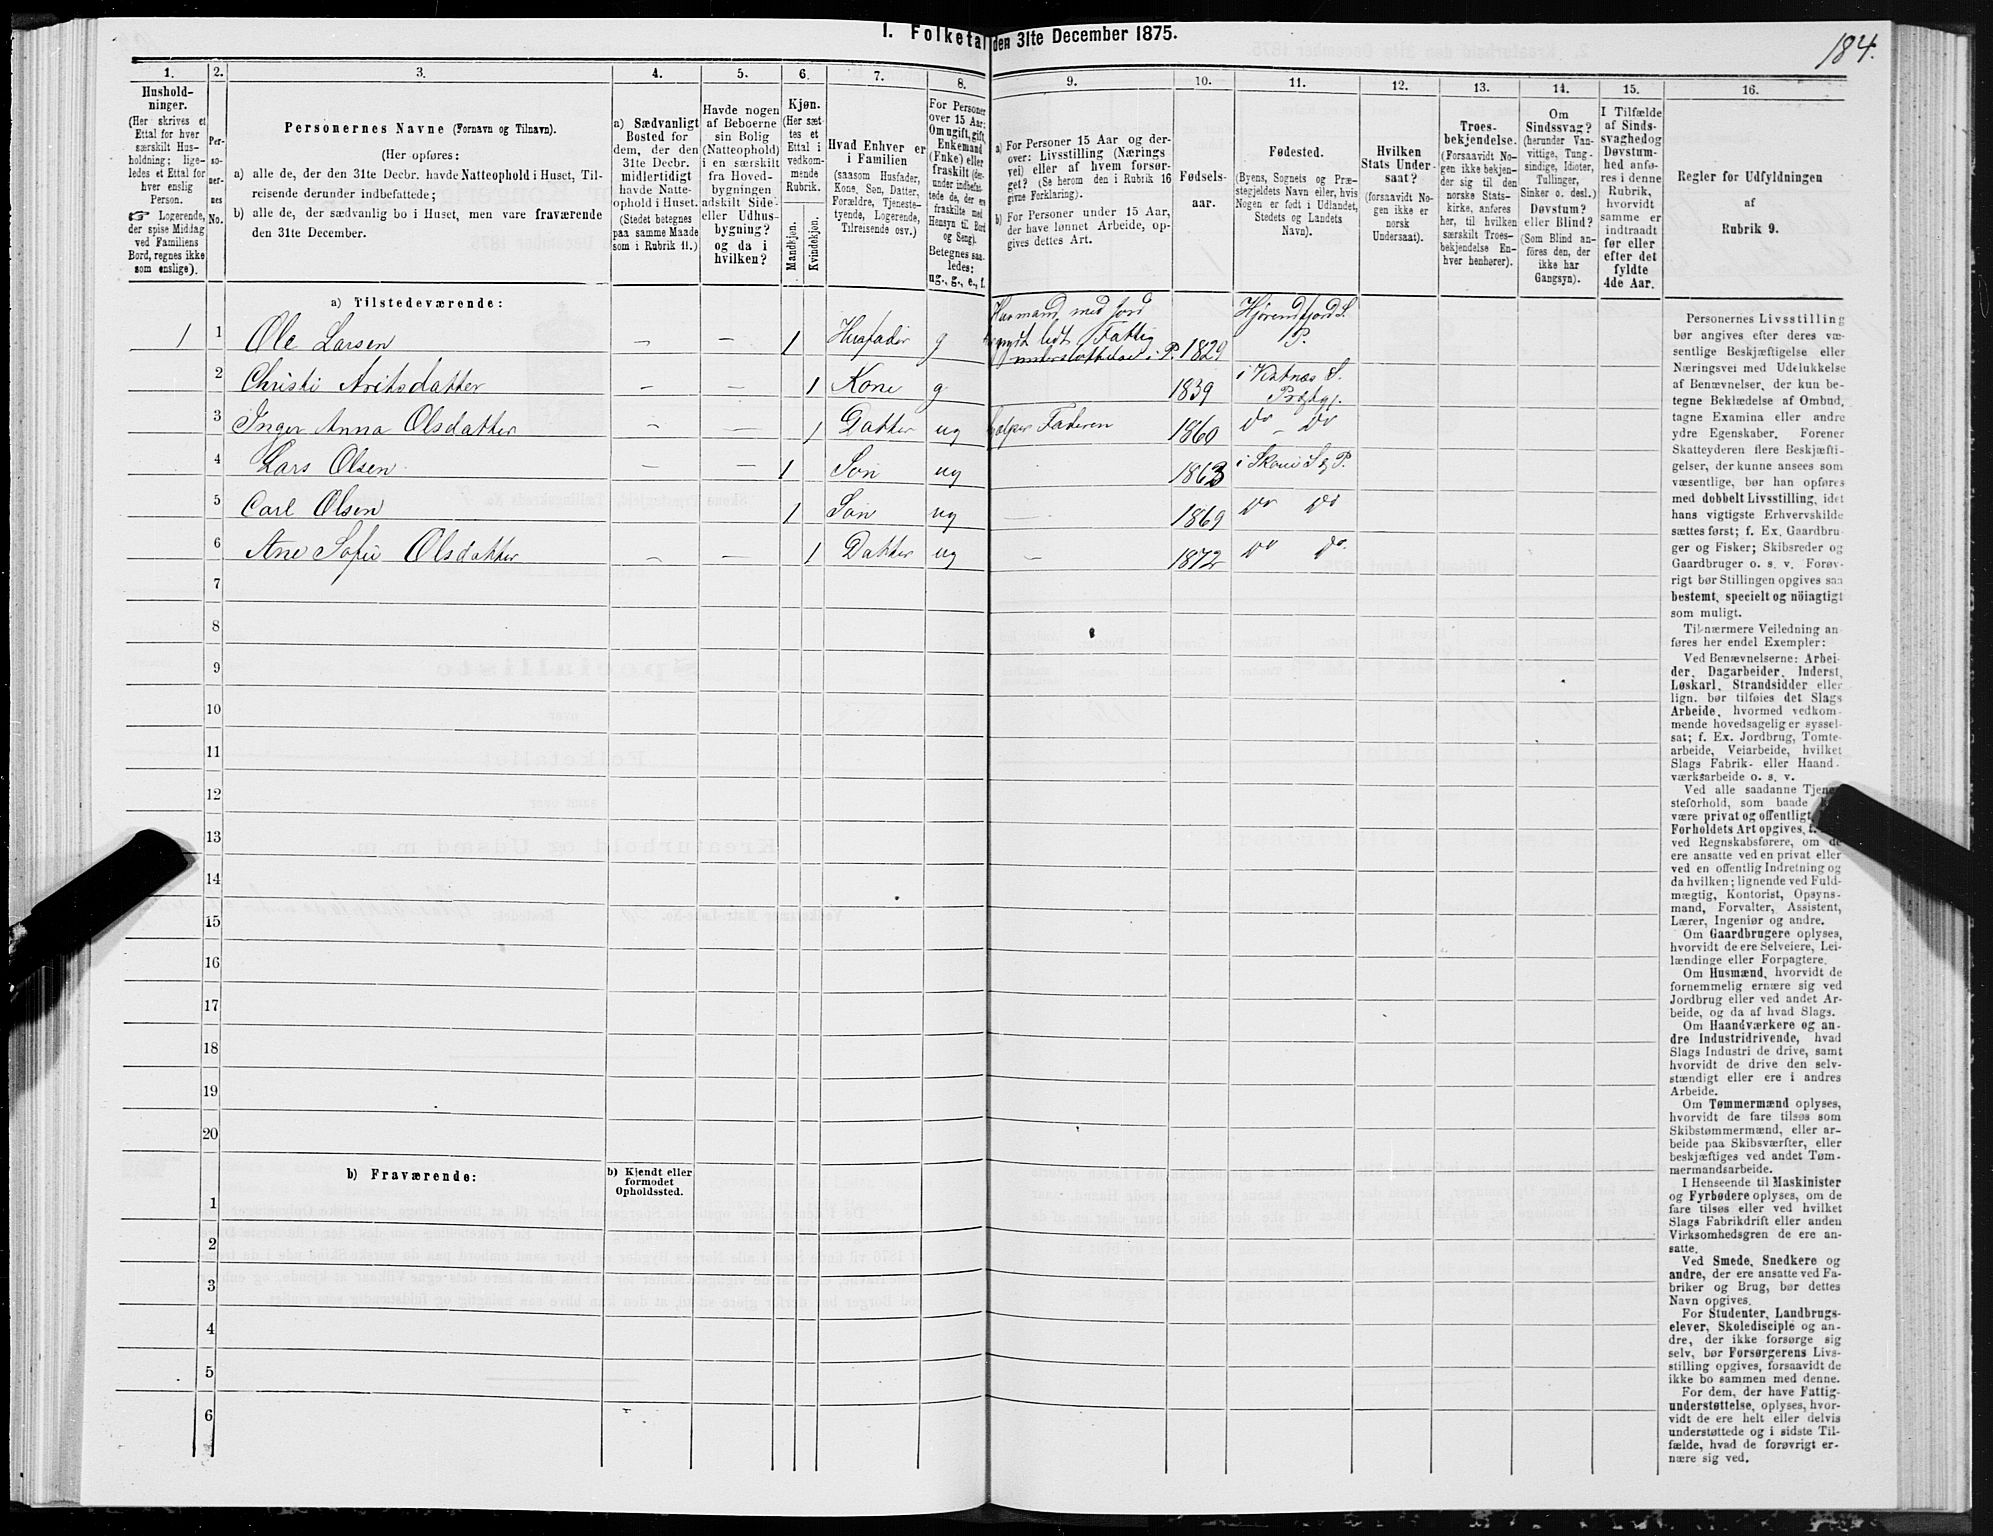 1. Folketal den 31te December 1875.
184.
1.
2.
3.
4.
5.
6.
7.
8.
9.
10.
11.
12.
13.
14.
15.
16.
Hushold-
ninger.
(Her skrives et
Ettal for hver
særskilt Hus-
holdning; lige-
ledes et Ettal for
hver enslig
Person.
☞ Logerende,
der spise Middag
ved Familiens
Bord, regnes ikke
som enslige).
Per-
so-
ner-
nes
No.
Personernes Navne (Fornavn og Tilnavn).
(Her opføres:
a) alle de, der den 31te Decbr. havde Natteophold i Huset, Til-
reisende derunder indbefattede;
b) alle de, der sædvanlig bo i Huset, men vare fraværende
den 31te December.
a) Sædvanligt
Bosted for
dem, der den
31te Decbr.
midlertidigt
havde Natte-
ophold i Huset.
(Stedet betegnes
paa samme Maade
som i Rubrik 11.)
Havde nogen
af Beboerne
sin Bolig
(Natteophold)
i en særskilt
fra Hoved-
bygningen
adskilt Side-
eller Udhus-
bygning?
og da i
hvilken?
Kjøn.
(Her sæt-
tes et
Ettal i
vedkom-
mende
Rubrik.
Mandkjøn.
Kvindekjøn.
Hvad Enhver er
i Familien
(saasom Husfader,
Kone, Søn, Datter,
Forældre, Tjeneste-
tyende, Logerende,
Tilreisende osv.)
For Personer
over 15 Aar:
Om ugift, gift,
Enkemand
(Enke) eller
fraskilt (der-
under indbefat-
tede de, der ere
fraskilte med
Hensyn til Bord
og Seng).
Betegnes saa-
ledes:
ug., g., e., f.
a) For Personer 15 Aar og der-
over: Livsstilling (Nærings
vei) eller af hvem forsør-
get? (Se herom den i Rubrik 16
givne Forklaring).
b) For Personer under 15 Aar,
der have lønnet Arbeide, op-
gives dettes Art.
Fødsels-
aar.
Fødested.
(Byens, Sognets og Præ-
stegjeldets Navn eller, hvis
Nogen er født i Udlandet,
Stedets og Landets
Navn).
Hvilken
Stats Under-
saat?
(forsaavidt No-
gen ikke er
norsk
Undersaat).
Troes-
bekjendelse.
(Forsaavidt No-
gen ikke bekjen-
der sig til den
norske Stats-
kirke, anføres
her, til hvilken
særskilt Troes-
bekjendelse En-
hver henhører).
Om
Sindssvag?
(herunder Van-
vittige, Tung-
sindige, Idioter,
Tullinger,
Sinker o. desl.)
Døvstum?
eller Blind?
(Som Blind an-
føres den, der
ikke har
Gangsyn).
I Tilfælde
af Sinds-
svaghed og
Døvstum-
hed anfø-
res i denne
Rubrik,
hvorvidt
samme er
indtraadt
før eller
efter det
fyldte
4de Aar.
Regler for Udfyldningen
af
Rubrik 9.
a) Tilstedeværende:
1 1 Ole Larsen — — 1 Husfader g Husmand med Jord nydt lidt Fattig understøttelse i P. 1829 Hjørendfjord S. P.
2 Christi Aritsdatter — — 1 Kone g 1839 i Vestnæs S. Præstgj.
3 Inger Anna Olsdatter — — 1 Datter ug hjælper Faderen 1860 Do — Do
4 Lars Olsen — — 1 Søn ug 1863 i Skoue S & P.
5 Carl Olsen 1 Søn ug — 1869 Do Do
6 Ane Sofie Olsdatter — — 1 Datter ug — 1872 Do Do.
7
8
9
10
11
12
13
14
15
16
17
18
19
20
b) Fraværende:
b) Kjendt eller
formodet
Opholdssted.
1
2
3
4
5
6
Personernes Livsstilling
bør angives efter deres væ-
sentlige Beskjæftigelse eller
Næringsvei med Udelukkelse
af Benævnelser, der kun be-
tegne Beklædelse af Ombud,
tagne Examina eller andre
ydre Egenskaber. Forener
Skatteyderen flere Beskjæfti-
gelser, der kunne ansees som
væsentlige, bør han opføres
med dobbelt Livsstilling, idet
hans vigtigste Erhvervskilde
sættes først; f. Ex. Gaardbru-
ger og Fisker; Skibsreder og
Gaardbruger o. s. v. Forøv-
rigt bør Stillingen opgives saa
bestemt, specielt og nöiagtigt
som muligt.
Til nærmere Veiledning an-
føres her endel Exempler:
Ved Benævnelserne: Arbei-
der, Dagarbeider, Inderst,
Løskarl, Strandsidder eller
lign. bør tilføies det Slags
Arbeide, hvormed vedkom-
mende hovedsagelig er syssel-
sat; f. Ex. Jordbrug, Tomte-
arbeide, Veiarbeide, hvilket
Slags Fabrik- eller Haand-
værksarbeide o. s. v.
Ved alle saadanne Tjene-
steforhold, som baade
være privat og offentligt,
Forholdets Art opgives,
ved Regnskabsførere, om de
ere ansatte ved en privat eller
ved en offentlig Indretning og
da hvilken; lignende ved Fuld-
mægtig, Kontorist, Opsyns-
mand, Forvalter, Assistent,
Lærer, Ingeniør og andre.
Om Gaardbrugere oplyses,
hvorvidt de ere Selveiere, Lei-
lændinge eller Forpagtere.
Om Husmænd, hvorvidt de
fornemmelig ernære sig ved
Jordbrug eller ved andet Ar-
beide, og da af hvad Slags.
Om Haandværkere og an-
dre Industridrivende, hvad
Slags Industri de drive, samt
hvorvidt de drive den selv-
stændigt eller ere i andres
Arbeide.
Om Tømmermænd oplyses,
hvorvidt de fare tilsøs som
Skibstømmermænd, eller ar-
beide paa Skibsværfter, eller
beskjæftiges ved andet Tøm-
mermandsarbeide.
I Henseende til Maskinister
og Fyrbødere oplyses, om de
fare tilsøs eller ved hvilket
Slags Fabrikdrift eller anden
Virksomhedsgren de ere an-
satte.
Ved Smede, Snedkere og
andre, der ere ansatte ved Fa-
briker og Brug, bør dettes
Navn opgives.
For Studenter, Landbrugs-
elever, Skoledisciple og an-
dre, der ikke forsørge sig
selv, bør Forsørgerens Livs-
stilling opgives, forsaavidt de
ikke bo sammen med denne.
For dem, der have Fattig-
understøttelse, oplyses, hvor-
vidt de ere helt eller delvis
understøttede og i sidste Til-
fælde, hvad de forøvrigt er-
nære sig ved.